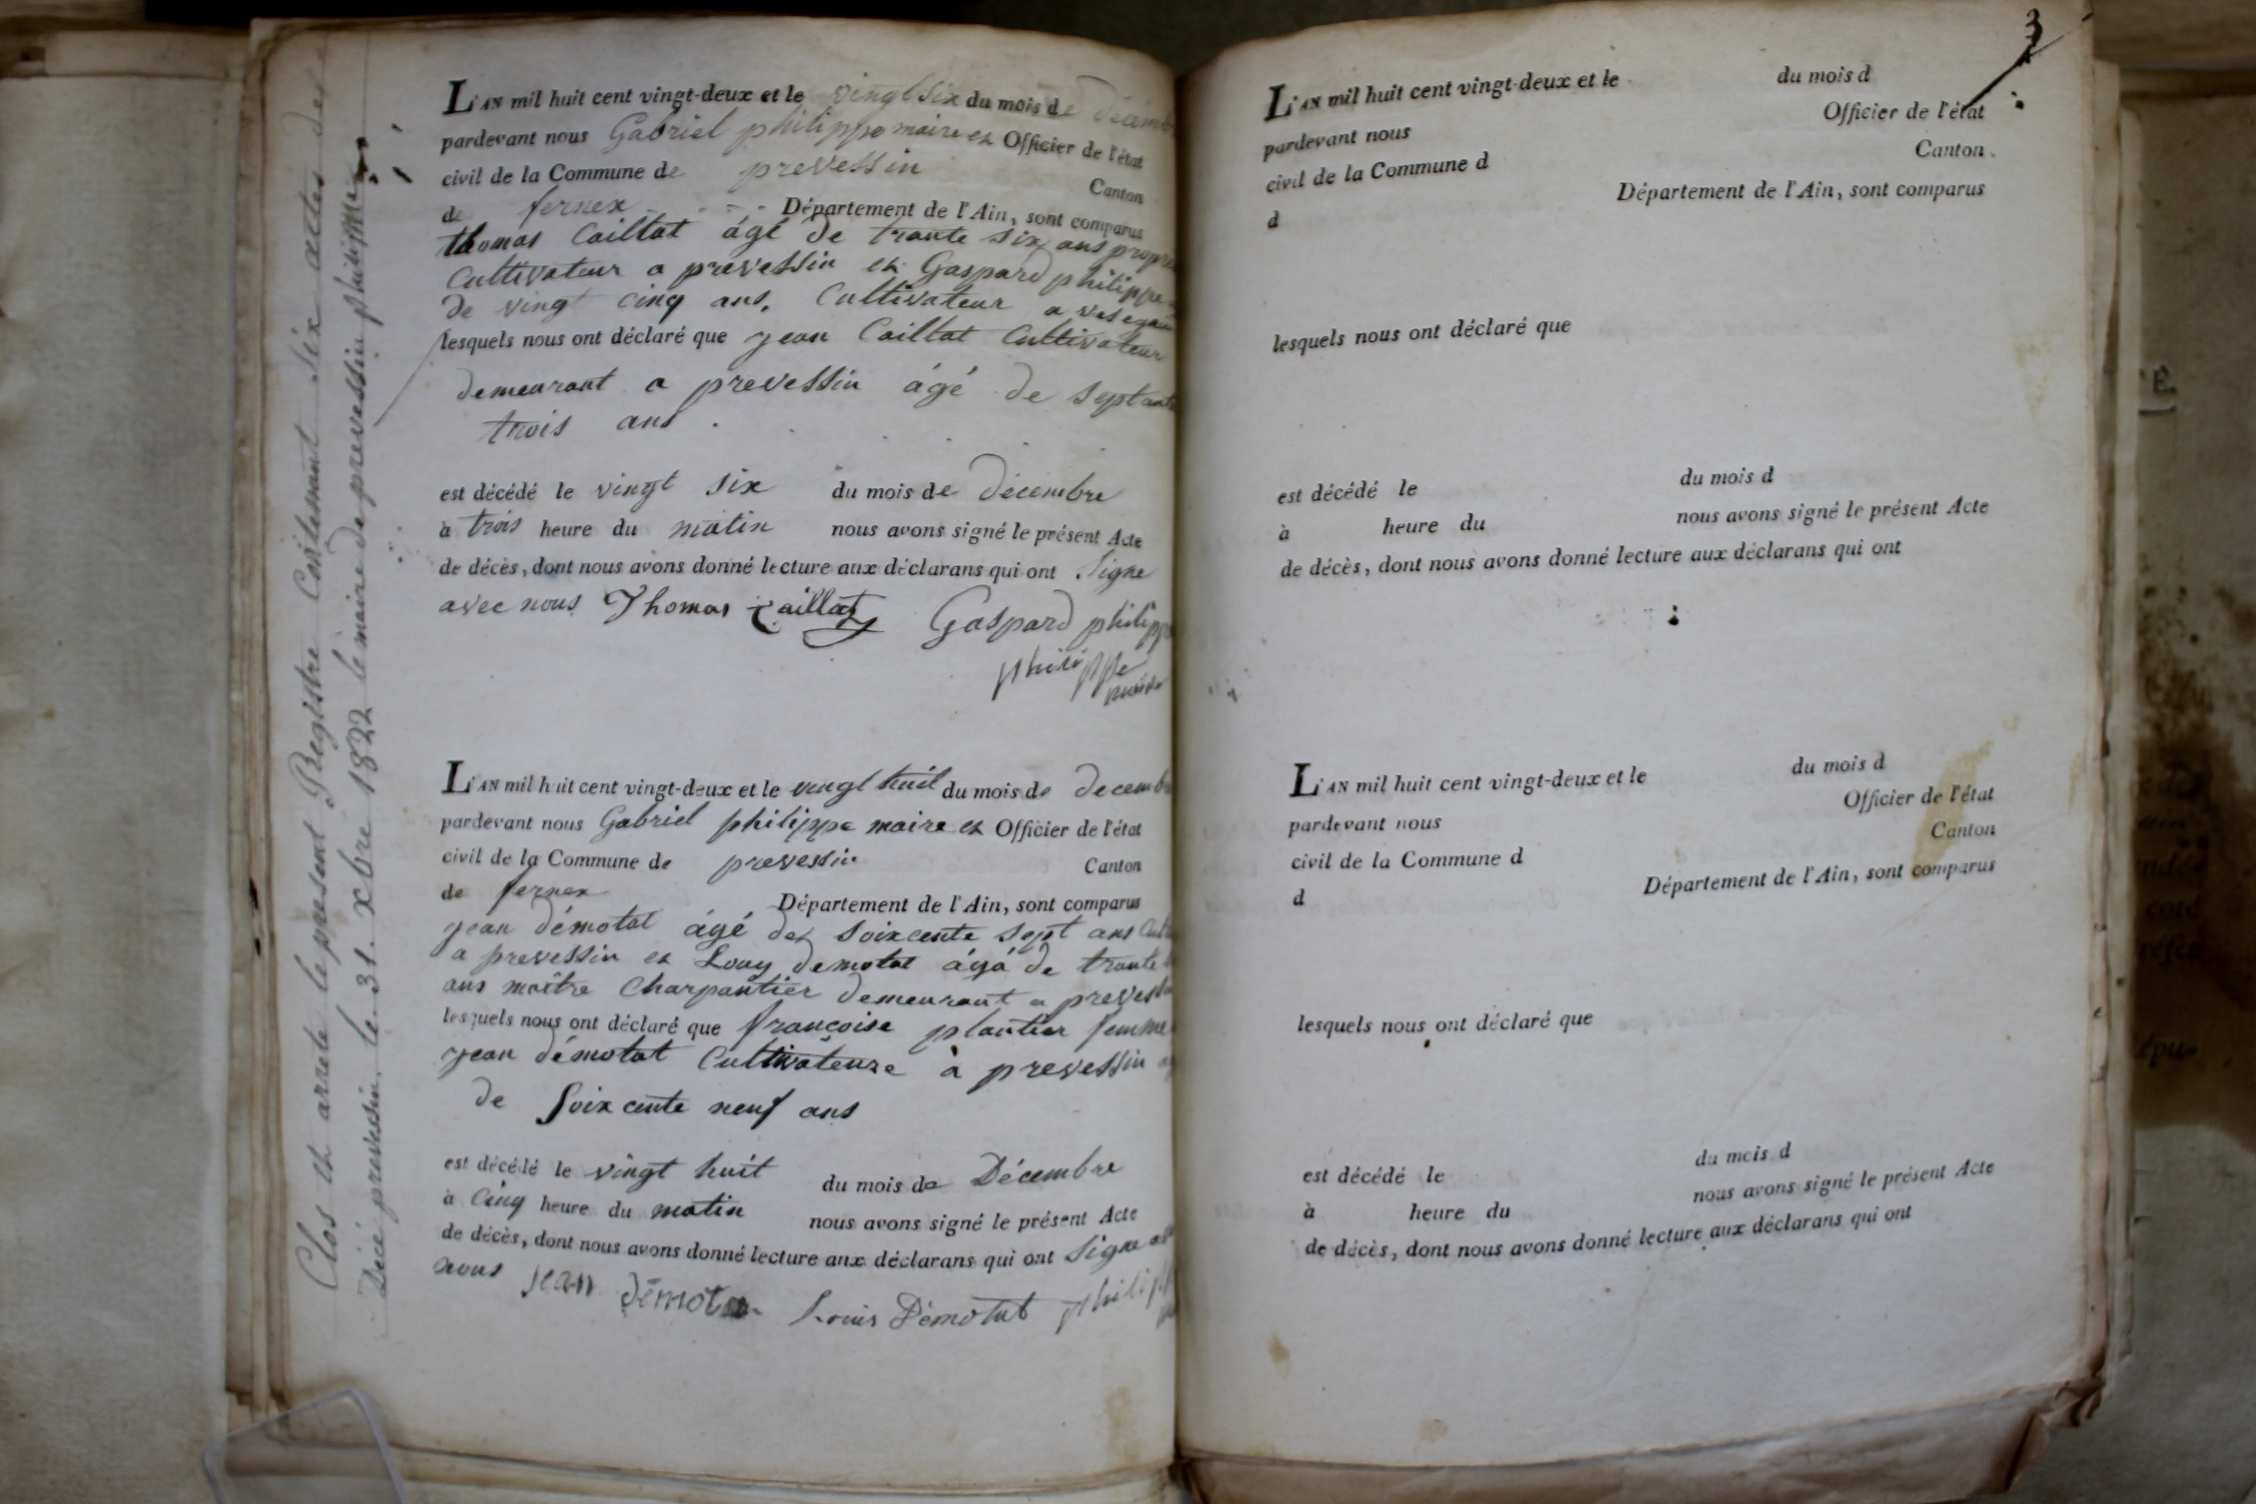 Clos et arrete le present Registre Contenant Six actes de
Décé prevessin le 31. xbre 1822 le maire de prevessin philippe
L'AN mil huit cent vingt-deux et le vingt six du mois de décemb
pardevant nous Gabriel philippe maire et Officier de l'état
civil de la Commune de prevessin Canton
de fernex Département de l'Ain, sont comparus
thomas Caillat ágé de trante six ans propre
Cultivateur a prevessin et Gaspard philippe
de vingt cinq ans, Cultivateur a
lesquels nous ont déclaré que jean Caillat Cultivateur
demeurant a prevessin ágé de septante
trois ans.
est décédé le vingt six du mois de décembre
à trois heure du matin nous avons signé le présent Acte
de décès, dont nous avons donné lecture aux déclarans qui ont Signe
avec nous Thomas Caillat Gaspard philippe
philippe
maire
L'AN mil huit cent vingt-deux et le vingt huit du mois de decemb
pardevant nous Gabriel philippe maire et Officier de l'état
civil de la Commune de prevessin Canton
de fernex Département de l'Ain, sont comparus
jean démotat ágé de soixcente sept ans Cult
a prevessin et Louy demotat ágé de trante
ans maître Charpantier demeurant a prevessin
lesquels nous ont déclaré que françoise plantier femme
jean démotat Cultivateure à prevessin
de Soixcente neuf ans
est décédé le vingt huit du mois de Décembre
à Cinq heure du matin nous avons signé le présent Acte
de décès, dont nous avons donné lecture aux déclarans qui ont Signe
nous jean démota Louis Démotat philipp
3
L'AN mil huit cent vingt-deux et le du mois d
pardevant nous Officier de l'état
civil de la Commune d Canton
d Département de l'Ain, sont comparus
lesquels nous ont déclaré que
est décédé le du mois d
à heure du nous avons signé le présent Acte
de décès, dont nous avons donné lecture aux déclarans qui ont
L'AN mil huit cent vingt-deux et le du mois d
pardevant nous Officier de l'état
civil de la Commune d Canton
d Département de l'Ain, sont comparus
lesquels nous ont déclaré que
est décédé le du mois d
à heure du nous avons signé le présent Acte
de décès, dont nous avons donné lecture aux déclarans qui ont